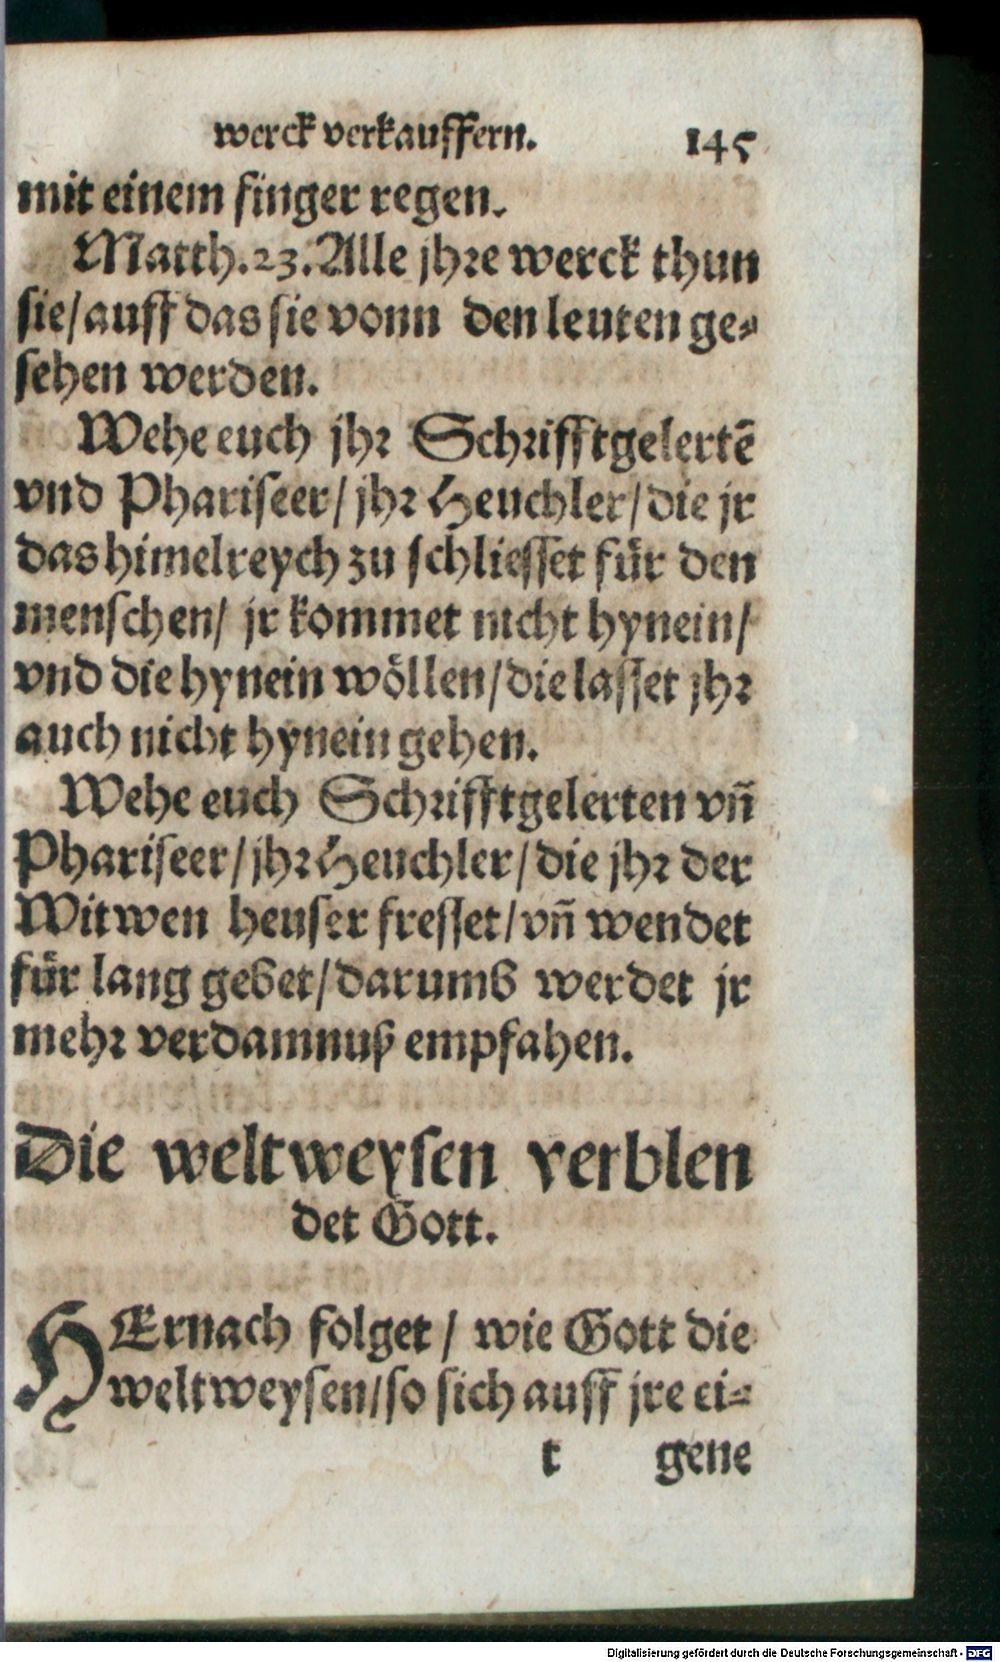 werck verkauffern. 145
mit einem finger regen.
Matth. 23. Alle jhre werck thun
sie/ auff das sie vonn den leuten ge-
sehen werden.
Wehe euch jhr Schrifftgelertẽ
vnd Phariseer/ jhr Heuchler/ die jr
das himelreych zu schliesset für den
menschen/ jr kommet nicht hynein/
vnd die hynein wöllen/ die lasset jhr
auch nicht hynein gehen.
Wehe euch Schrifftgelerten vñ
Phariseer/ jhr Heuchler/ die jhr der
Witwen heuser fresset/ vñ wendet
für lang gebet/ darumb werdet jr
mehr verdamnuß empfahen.
Die weltweysen verblen
det Gott.
HErnach folget/ wie Gott die
weltweysen/ so sich auff jre ei-
t gene
Digitalisierung gefördert durch die Deutsche Forschungsgemeinschaft - DFG